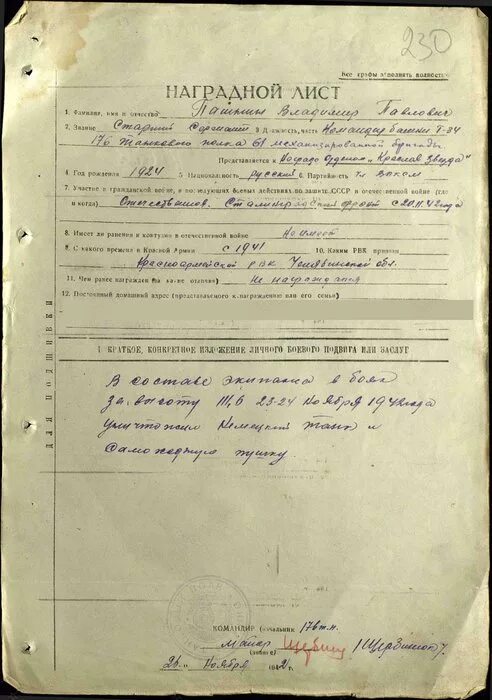 230
Все графы заполнять полностью
НАГРАДНОЙ ЛИСТ
1. Фамилия, имя и отчество Владимир Павлович
2. Звание Старший Сержант 3. Должность, часть Командир башни Т-34
176 Танкового полка 61 механизированной бригады
Представляется к Ордена „Красная Звезда"
4. Год рождения 1924 5. Национальность русский 6. Партийность
7. Участие в гражданской войне, и последующих боевых действиях по защите СССР и отечественной войне (где
и когда) Сталинградский фронт с 20.11.42 года
8. Имеет ли ранения и контузии в отечественной войне Не имеет
9. С какого времени в Красной Армии с 1941 10. Каким РВК призван
Красноармейской РВК Челябинской обл.
11. Чем ранее награжден (за какие отличия) Не награждался
12. Постоянный домашний адрес (представляемого к награждению или его семьи)
ДЛЯ ПОДШИВКИ
I КРАТКОЕ, КОНКРЕТНОЕ ИЗЛОЖЕНИЕ ЛИЧНОГО БОЕВОГО ПОДВИГА ИЛИ ЗАСЛУГ
В составе экипажа в боях
за высоту 111,8 23-24 ноября 1942 года
уничтожил Немецкий танк и
Самоходную пушку
КОМАНДИР (начальник 176 т.п.
майор /Щербинок/
(звание)
25 ноября 1942 г.